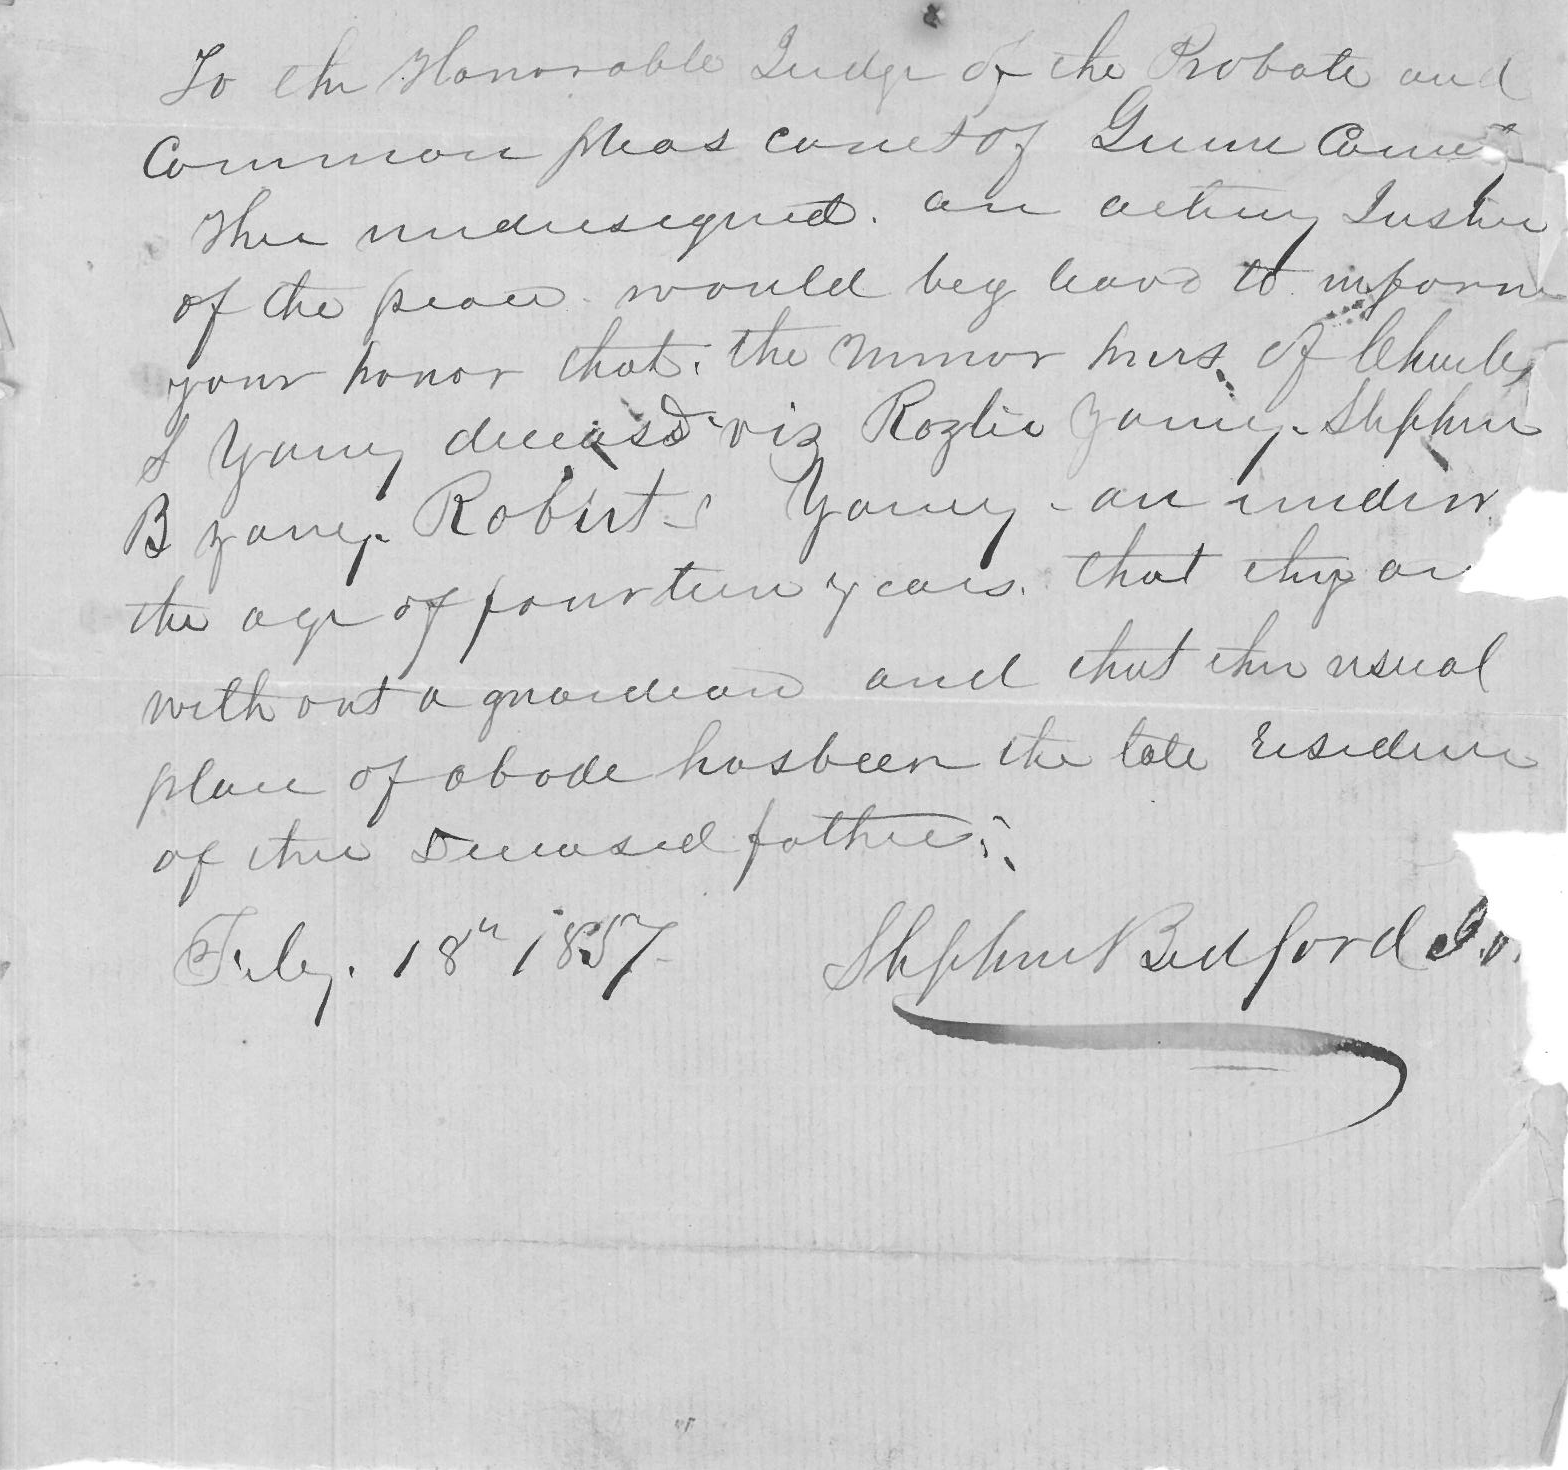 To the Honorable Judge of the Probate and
Common pleas court of Greene County
The undersigned. an acting Justice
of the peace would beg leave to inform
your honor that. the minor heirs of Charles
S Yancy deceasd viz Rozlie Yancy. Stephen
B Yancy. Robert Yancy - are under
the age of fourteen years. that they are
without a guardian and that their usual
place of abode has been the late residence
of their Deceased father.
Feby. 18th 1857 Stephen Bedford J.P.